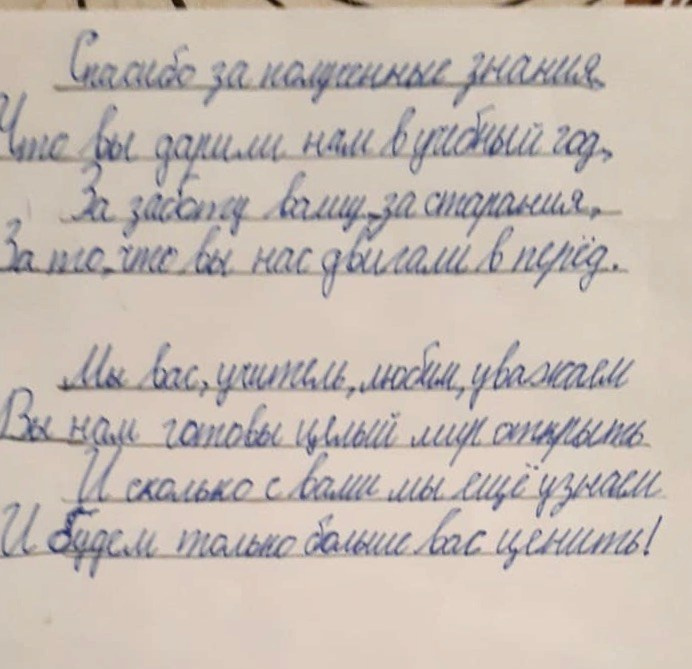 Спасибо за полученные знания,
Что вы дарили нам в учебный год,
За заботу вашу, за старания,
За то, что вы нас двигали в перёд.
Мы вас, учитель, любим, уважаем
Вы нам готовы целый мир открыть
И сколько с вами мы ещё узнаем
И будем только больше вас ценить!